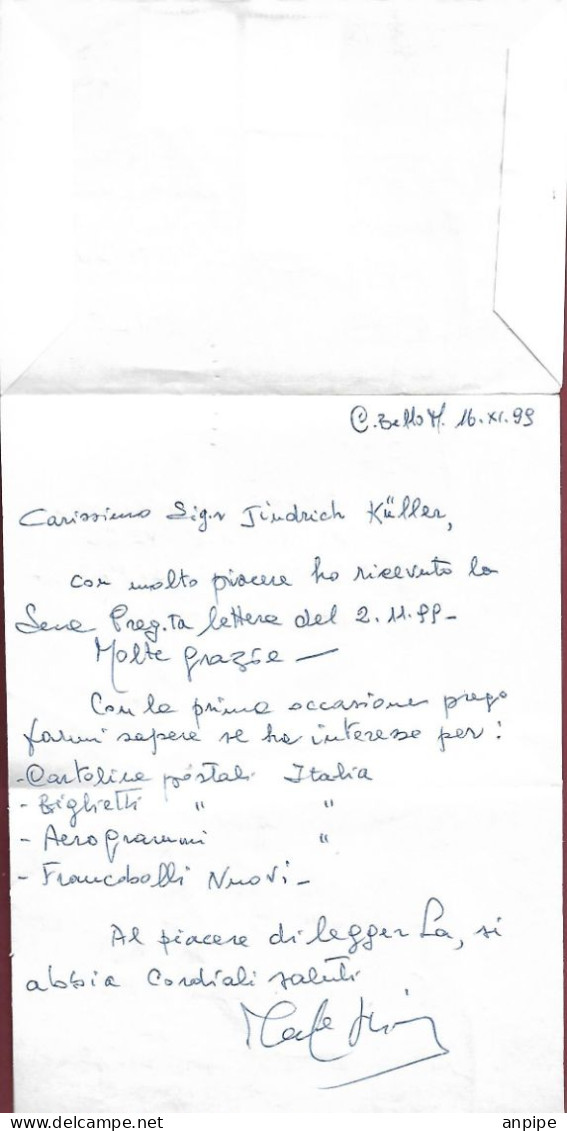 C. Bello M. 16.XI.99
Carissimo Sig.r Jindrich Küller,
con molto piacere ho ricevuto la
Sua Preg.ta lettera del 2.11.99-
Molte grazie —
Con la prima occasione prego
farmi sapere se ha interesse per:
- Cartoline postali Italia
- Biglietti " "
- Aerogrammi "
- Francobolli Nuovi -
Al piacere di legger La, si
abbia Cordiali saluti
anpipe